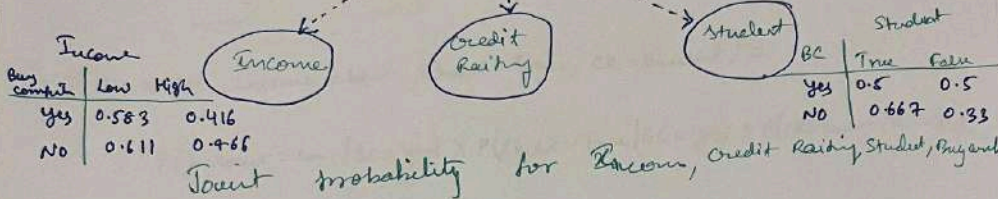 Income
Buy
comput Low High
Yes 0.583 0.416
NO 0.611 0.466
Income
Credit
Raiting
Student
Student
BC True False
Yes 0.5 0.5
NO 0.667 0.33
Joint probability for Income, Credit Raiting, Student,